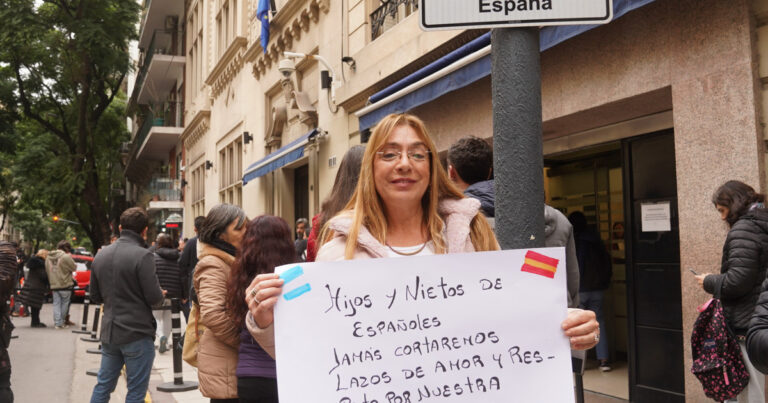 España
Hijos y Nietos de
Españoles
Jamás cortaremos
Lazos de Amor y Res-
peto por Nuestra